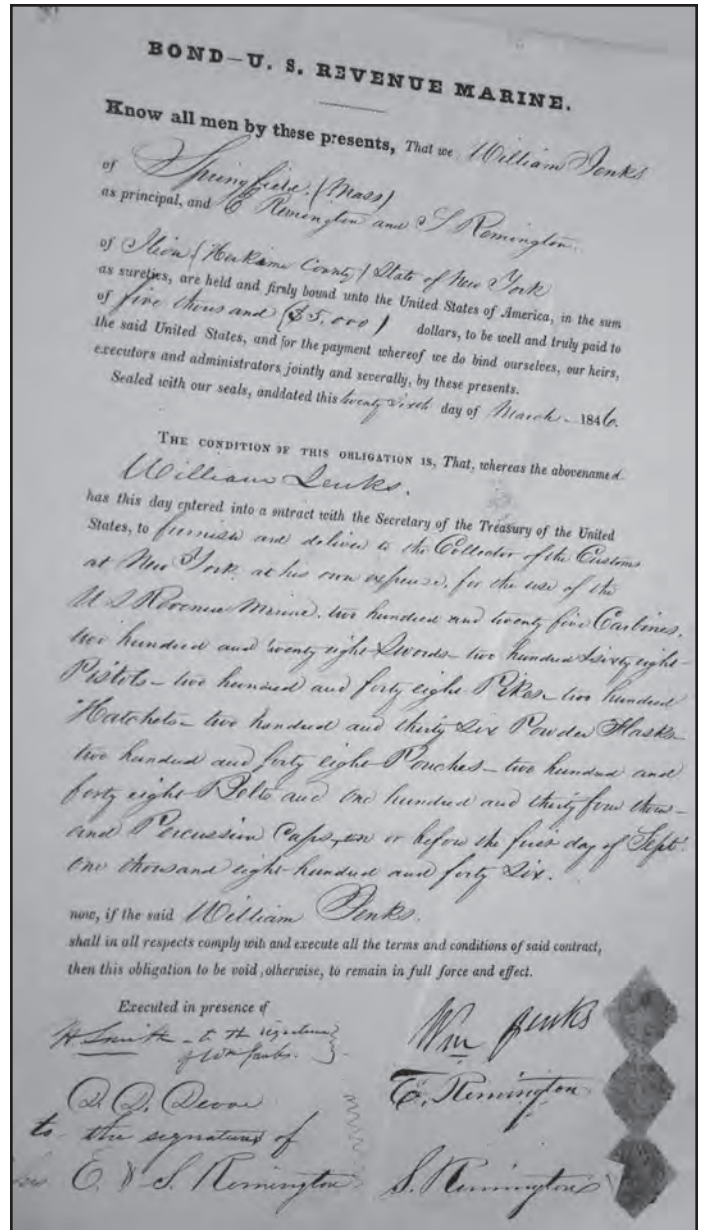 BOND—U. S. REVENUE MARINE.
Know all men by these presents, That we William Jenks
of Springfield (Mass)
as principal, and E Remington and S Remington
of Ilion (Herkimer County) State of New York
as sureties, are held and firmly bound unto the United States of America, in the sum
of five thousand ($5,000) dollars, to be well and truly paid to
the said United States, and for the payment whereof we do bind ourselves, our heirs,
executors and administrators, jointly and severally, by these presents.
Sealed with our seals, anddated this twenty sixth day of March 1846.
THE CONDITION OF THIS OBLIGATION IS, That, whereas the abovenamed
William Jenks.
has this day entered into a ontract with the Secretary of the Treasury of the United
States, to furnish and deliver to the Collector of the Customs
at New York, at his own expense, for the use of the
U S Revenue Marine, two hundred and twenty five Carbines,
two hundred and twenty eight Swords — two hundred sixty eight
Pistols — two hundred and forty eight Pikes — two hundred
Hatchets — two hundred and thirty six Powder Flasks —
two hundred and forty eight Pouches — two hundred and
forty eight Belts and One hundred and thirty four thous-
and Percussion Caps, on or before the first day of Sept.
one thousand eight hundred and forty six.
now, if the said William Jenks.
shall in all respects comply with and execute all the terms and conditions of said contract,
then this obligation to be void, otherwise, to remain in full force and effect.
Executed in presence of
H Smith — to the signature
of Wm Jenks.
Wm Jenks
D. D. Devoe
E. Remington
to the signatures of
E. & S. Remington
S. Remington